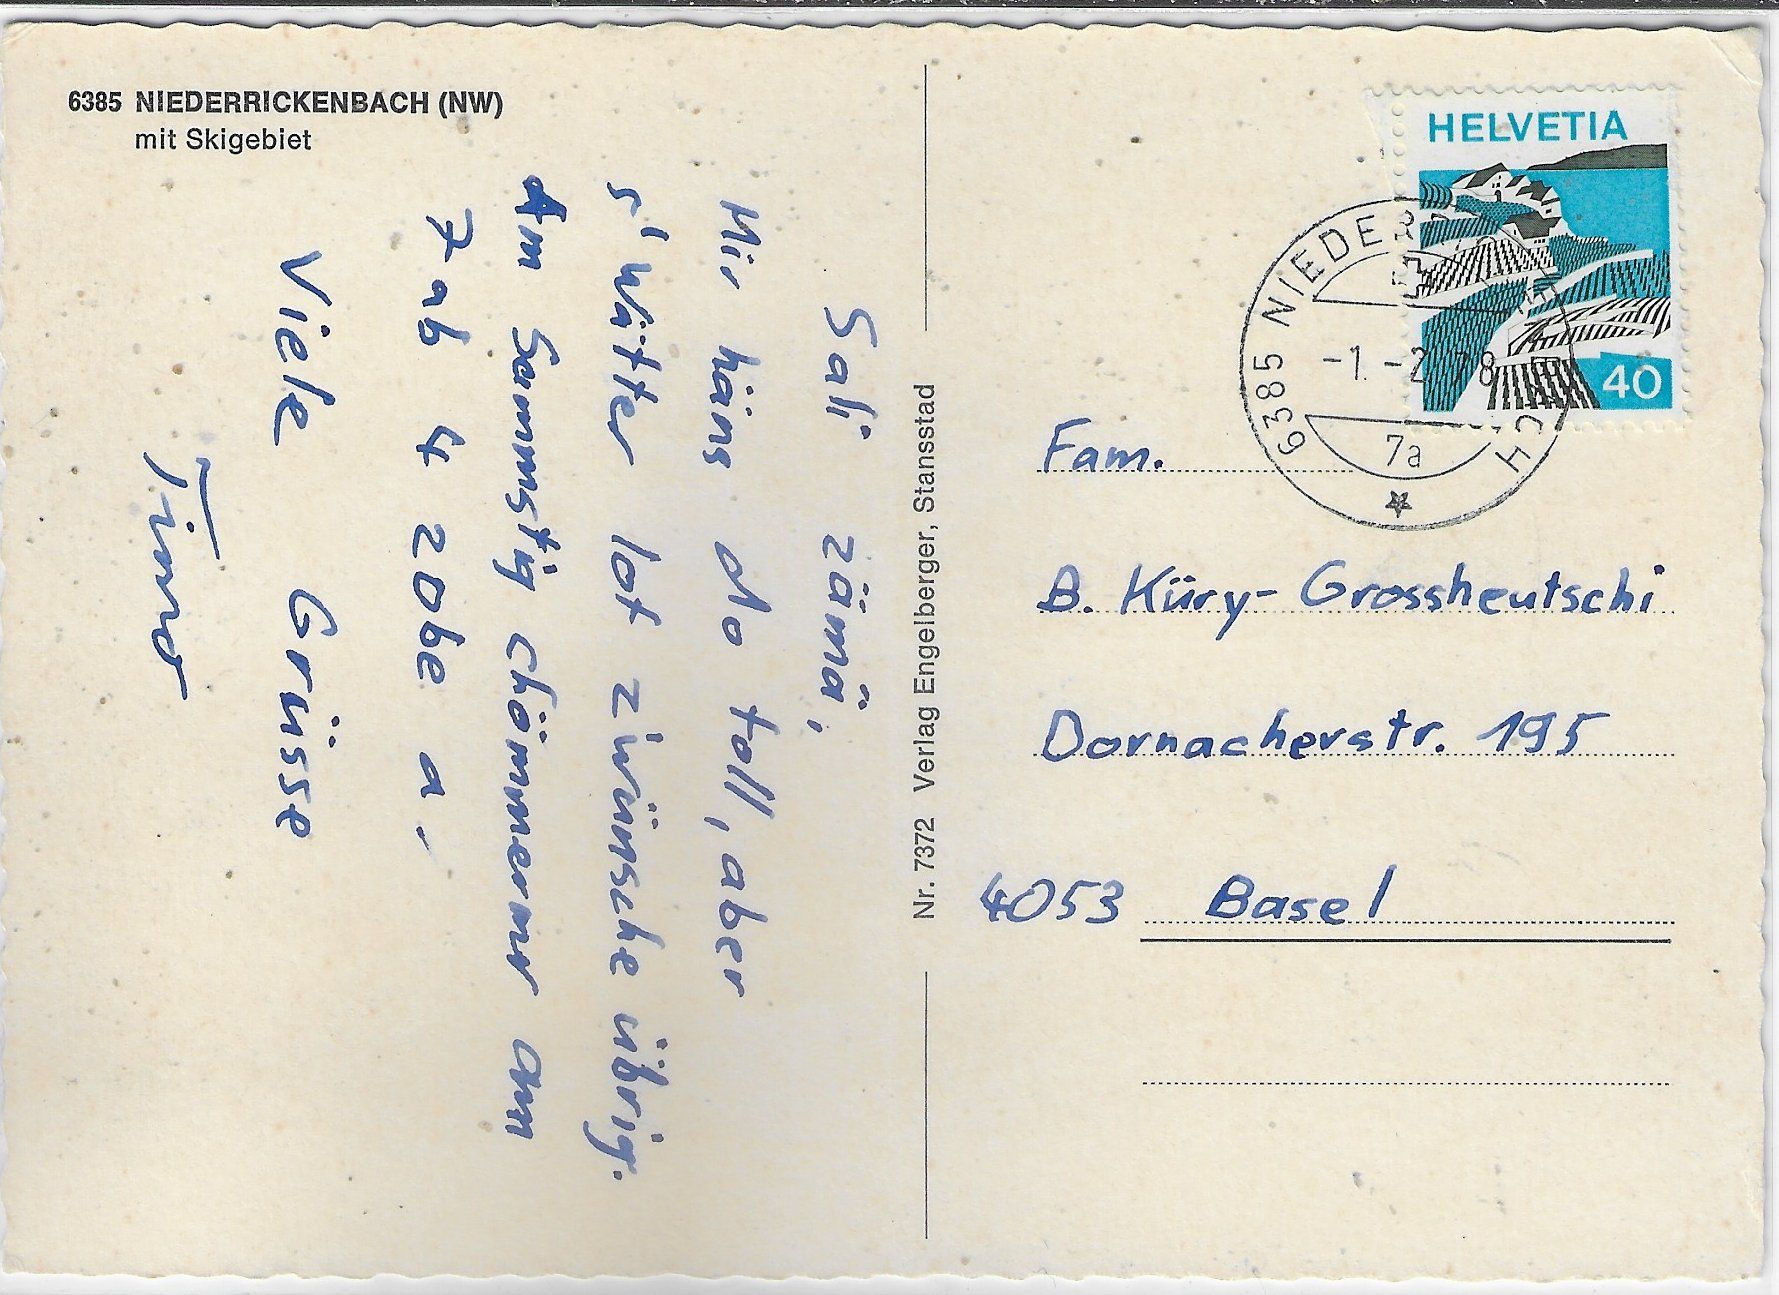 6385 NIEDERRICKENBACH (NW)
mit Skigebiet
Sali zämä,
Mir häns do toll, aber
s'Wätter lot z'wünsche übrig.
Am Sammstig chömmemr am
7 ab 4 zobe a.
Viele Grüsse
Timo
Nr. 7372 Verlag Engelberger, Stansstad
HELVETIA
40
6385 NIEDER CH
-1.-2. 78
7a
Fam.
B. Küry-Grossheutschi
Dornacherstr. 195
4053 Basel